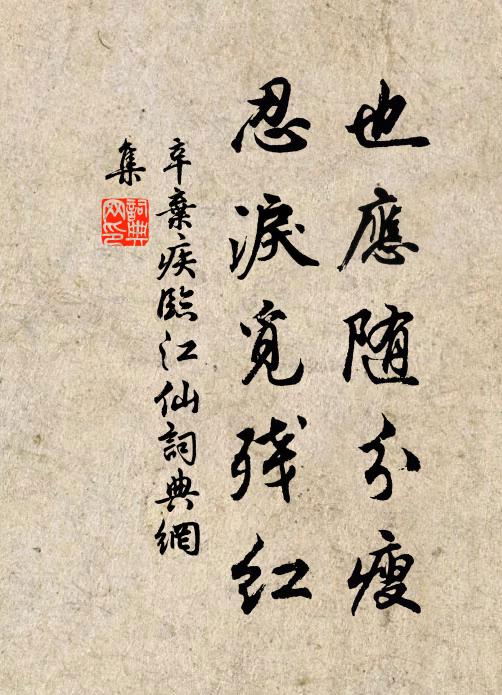 也應随分瘦
忍淚覓残红
辛棄疾臨江仙詞典網
集
詞典網印